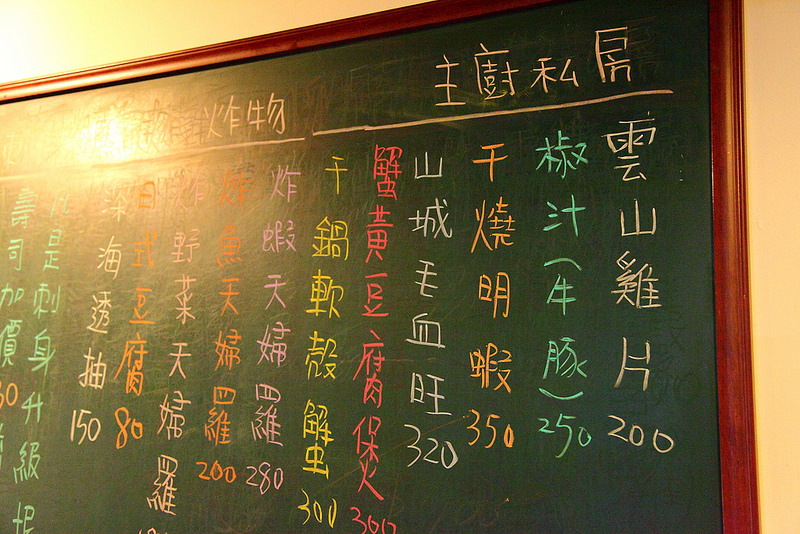 主廚私房
雲山雞片 200
椒汁(牛豚) 250
干燒明蝦 350
山城毛血旺 320
蟹黃豆腐煲 300
干鍋軟殼蟹 300
炸物
炸蝦天婦羅 280
炸魚天婦羅 200
炸野菜天婦羅
日式豆腐 80
深海透抽 150
凡是刺身升級
壽司加價